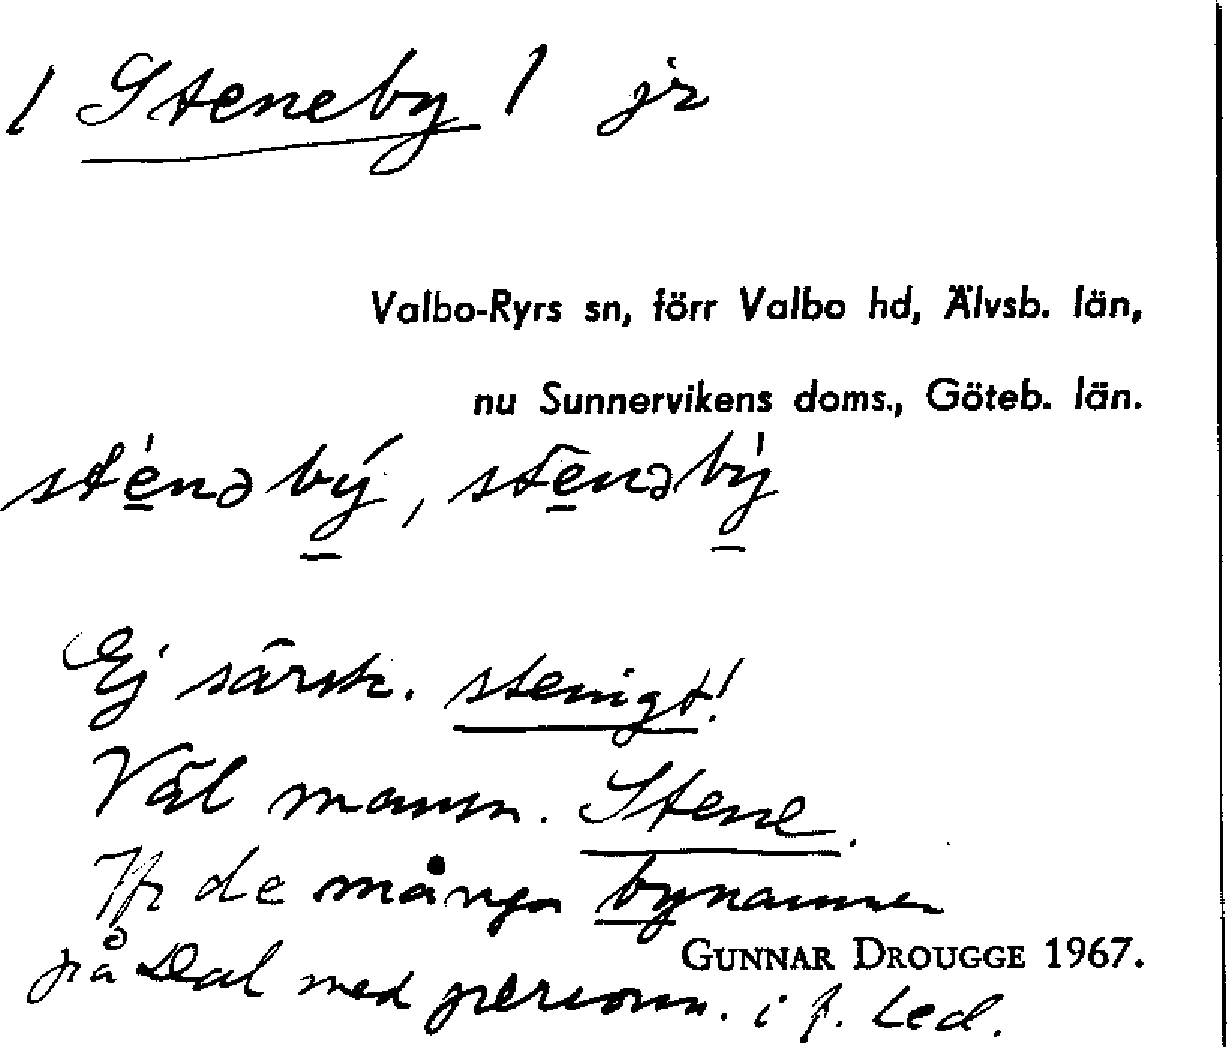 / Steneby / jr
Valbo-Ryrs sn, förr Valbo hd, Älvsb. län,
nu Sunnervikens doms., Göteb. län.
sténəbý, stēnəbý
Ej särsk. stenigt!
Väl mansn. Stene.
Jfr de många bynamnen
på Dal med personn. i f. led.
GUNNAR DROUGGE 1967.